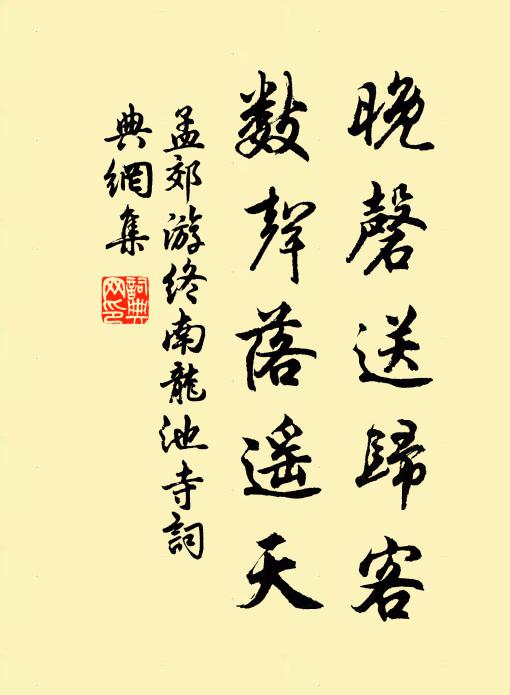 晚磬送歸客
數聲落遥天
孟郊游終南龍池寺詞
典網集
詞典網印